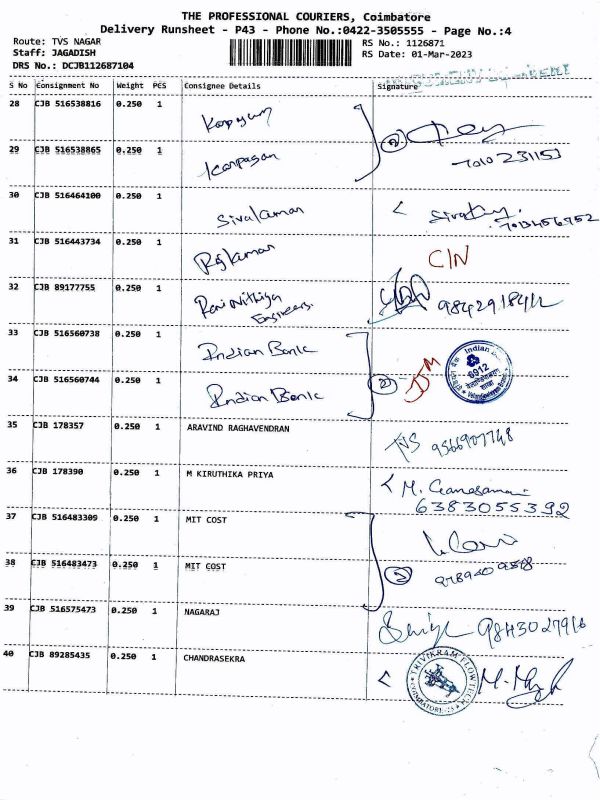 THE PROFESSIONAL COURIERS, Coimbatore
Delivery Runsheet - P43 - Phone No.:0422-3505555 - Page No.:4
Route: TVS NAGAR
Staff: JAGADISH
DRS No.: DCJB112687104
RS No.: 1126871
RS Date: 01-Mar-2023
S No Consignment No Weight PCS Consignee Details Signature
28 CJB 516538816 0.250 1
29 CJB 516538865 0.250 1 Karpagam
7010231153
30 CJB 516464100 0.250 1 Sivakumar
31 CJB 516443734 0.250 1 Rajkumar C/N
32 CJB 89177755 0.250 1 Engineers.
33 CJB 516560738 0.250 1 Indian Bank
34 CJB 516560744 0.250 1 Indian Bank
6912
35 CJB 178357 0.250 1 ARAVIND RAGHAVENDRAN
9566907748
36 CJB 178390 0.250 1 M KIRUTHIKA PRIYA
6383055392
37 CJB 516483309 0.250 1 MIT COST
38 CJB 516483473 0.250 1 MIT COST
39 CJB 516575473 0.250 1 NAGARAJ 9843027916
40 CJB 89285435 0.250 1 CHANDRASEKRA
TRIVIKRAM FLOWTECH